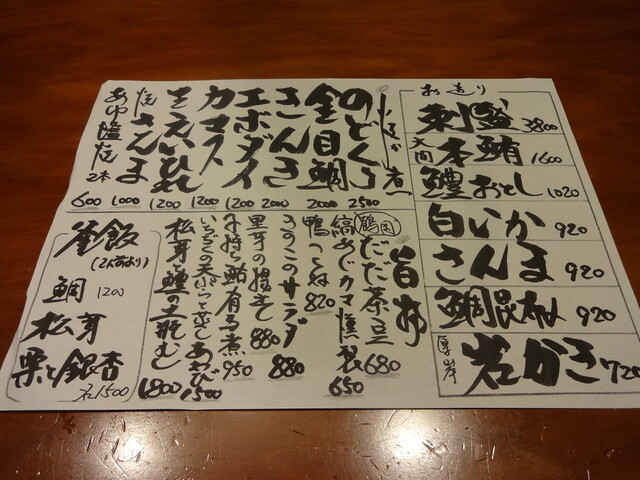 お造り
刺盛 3800
天然 本鮪 1600
鱧おとし 1020
白いか 920
さんま 920
鯛昆布〆 920
厚岸 岩かき 720
煮
のどくろ 2500
金目鯛 2000
きんき 2000
エボダイ 1200
カマス 1200
えいひれ 1200
焼さんま 1000
あゆ塩焼 2本 600
旨肴
鶴岡 だだ茶豆 680
縞あじカマ燻製 650
鴨つくね 820
きのこのサラダ 880
里芋の揚げ 880
子持ち鮎有馬煮 950
いちじくの天ぷら あわび 1500
松茸と鱧の土瓶むし 1800
釜飯
(2人前より)
鯛 1200
松茸
栗と銀杏
各1500